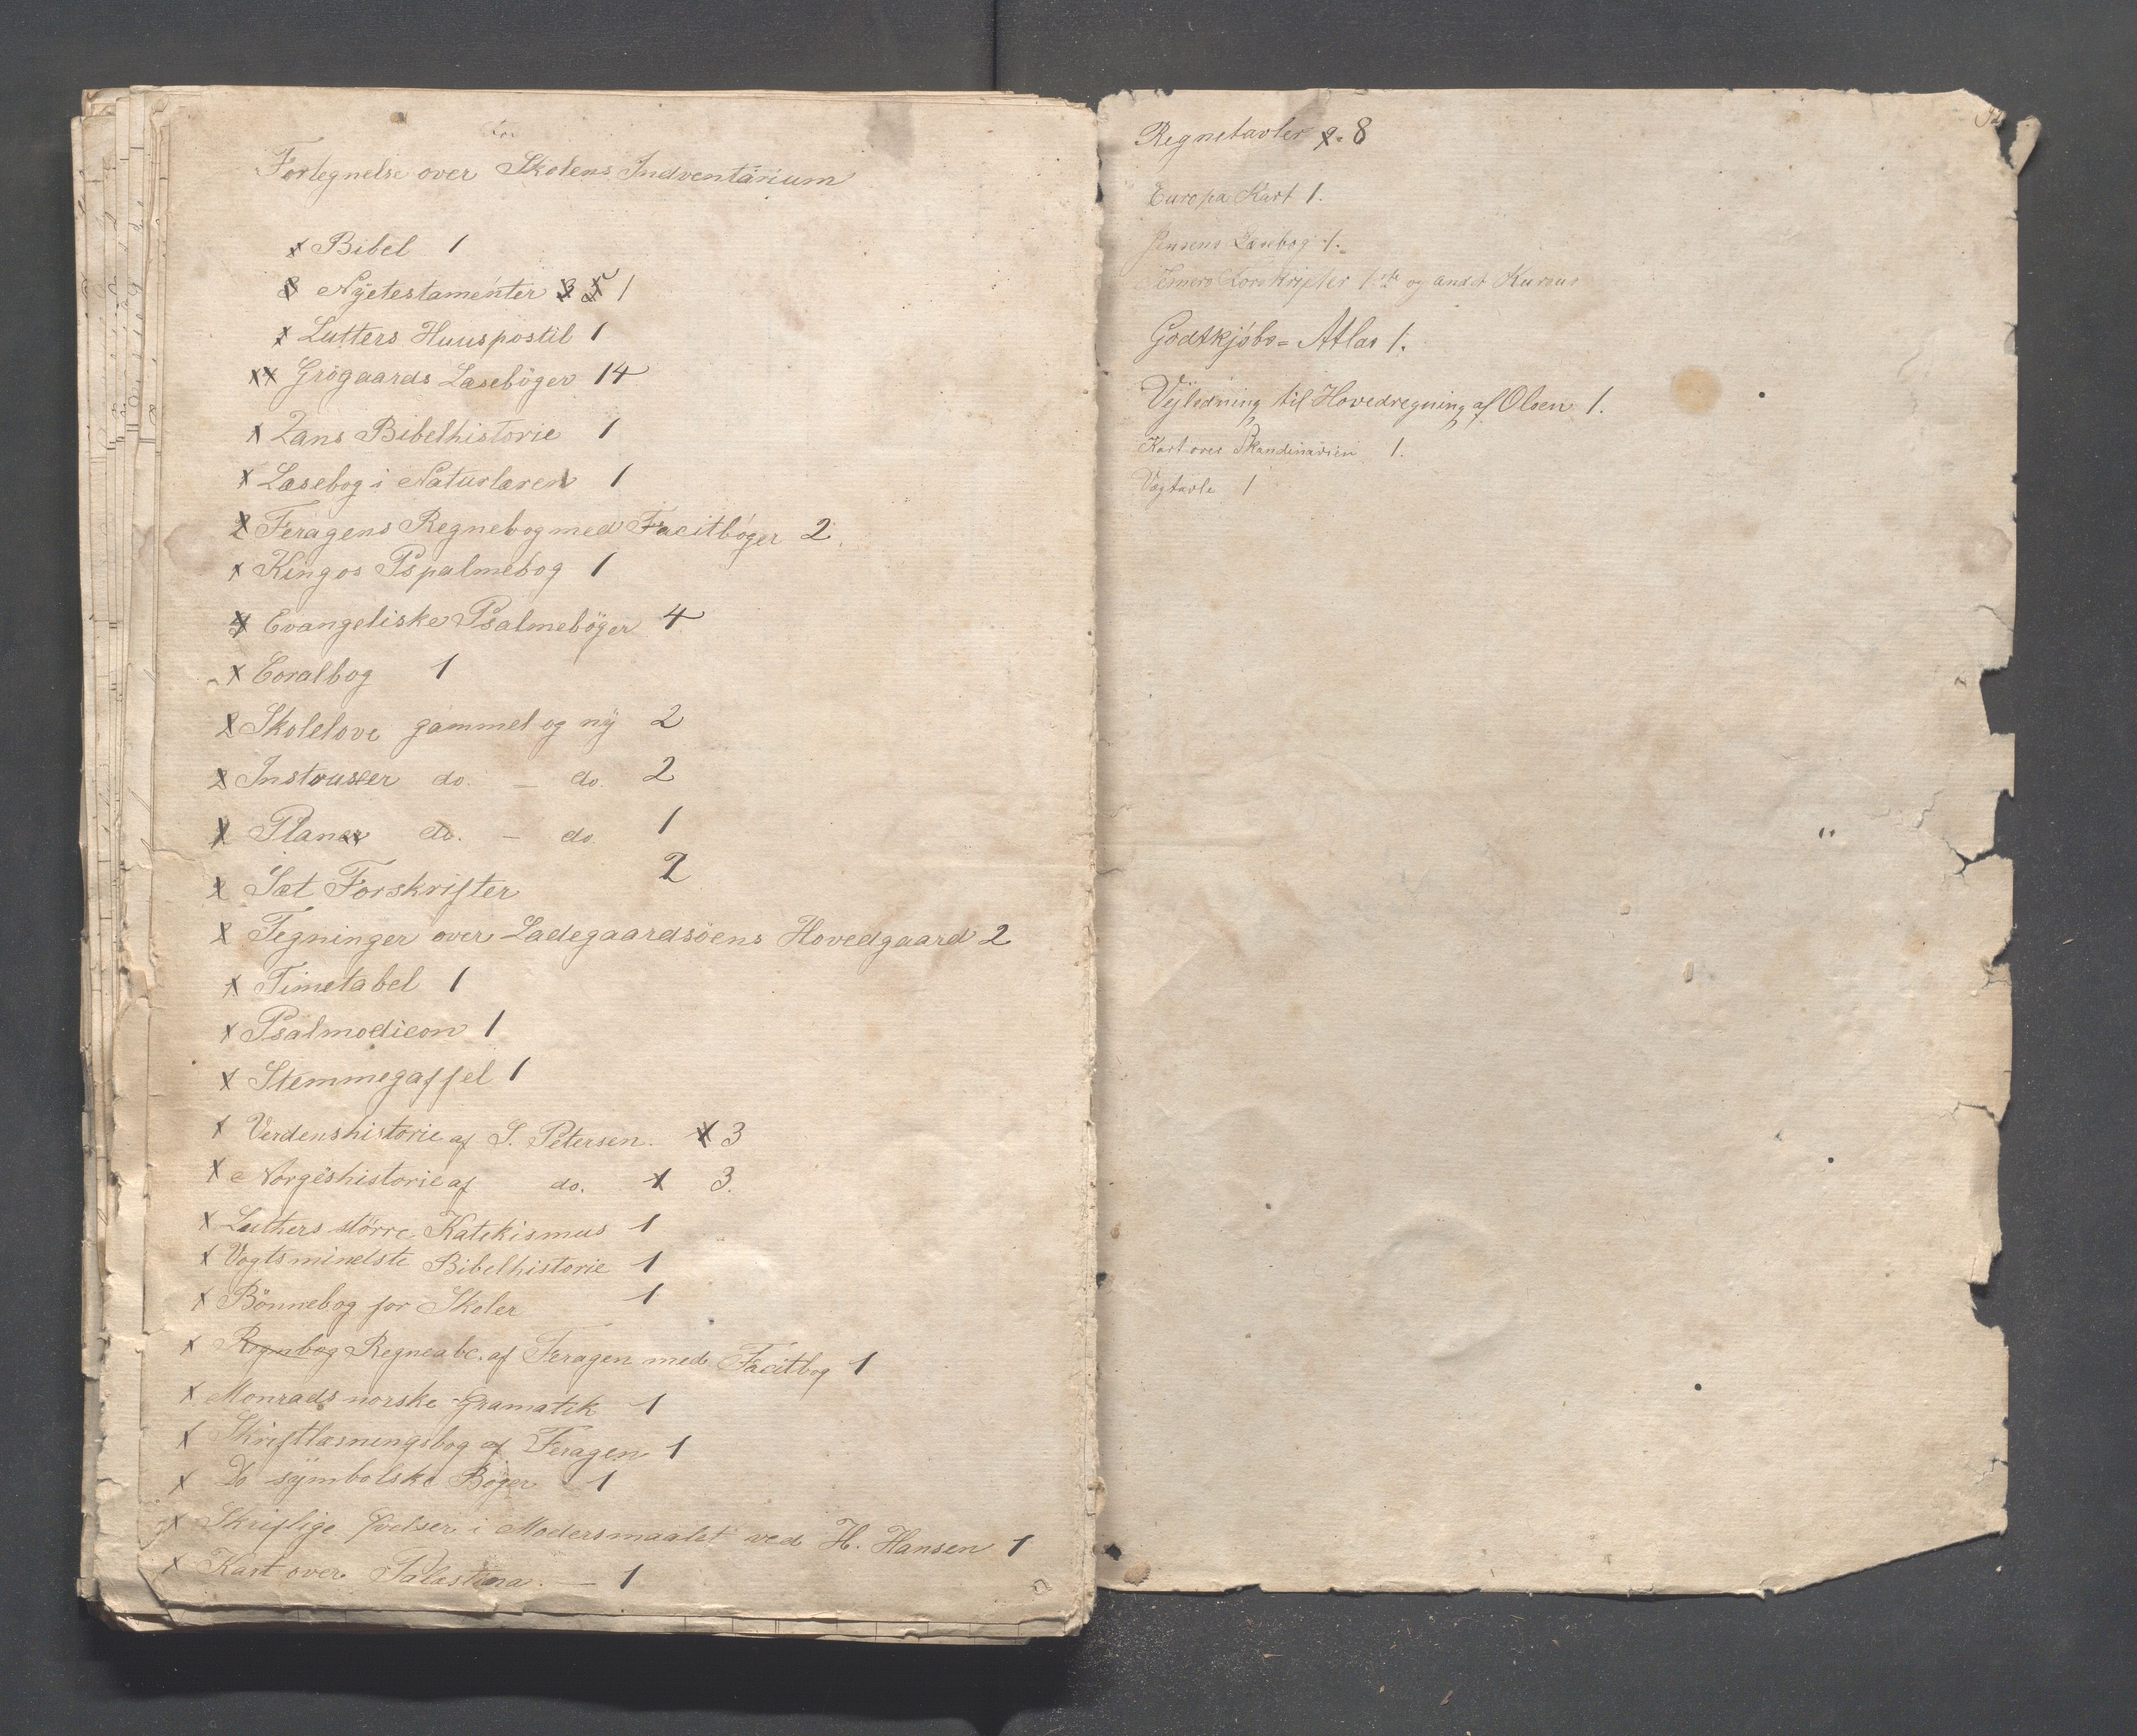 Fortegnelse over Skolens Indventarium
Bibel 1
Nÿetestamenter 1
Lutters Huuspostil 1
Grögaards Læseböger 14
Zans Bibelhistorie 1
Læsebog i Naturlæren 1
Feragens Regnebog med Facitböger 2
Kingos Pspalmebog 1
4 Evangeliske Psalmeböger 4
Coralbog 1
2 Skolelove gammel og nÿ 2
2 Instruxer do. — do. 2
Planer do. — do. 1
Sæt Forskrifter 2
2 Tegninger over Ladegaardsöens Hovedgaard 2
Timetabel 1
Psalmodicon 1
Stemmegaffel 1
1 Verdenshistorie af S. Petersen. 1 3
1 Norgeshistorie af do. 1 3.
1 Luthers större Katekismus 1
1 Vogts mindste Bibelhistorie 1
1 Bönnebog for Skoler 1
1 Regnbog Regneabc. af Feragen med Facitbog 1
1 Monrads norske Gramatik 1
1 Skriftlæsningsbog af Feragen 1
1 Do sÿmbolske Böger 1
Skriflige Øvelser i Modersmaalet ved H. Hansen 1
1 Kart over Palæstina. — 1
Regnetavler 8
Europa Kart 1.
Jensens Læsebog 1.
Forskrifter 1ste og andet Kursus
Godtkjöbs= Atlas 1.
Vejledning til Hovedregning af Olsen 1.
Kart over Skandinavien 1.
Vægtavle 1